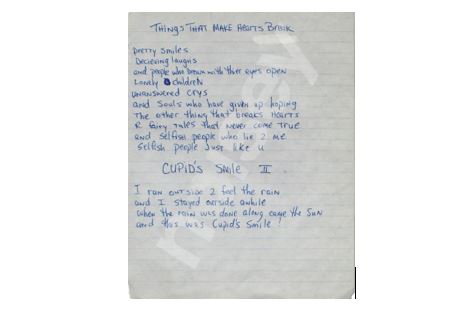 THINGS THAT MAKE HEARTS BREAK
pretty smiles
Decieving laughs
and people who dream with their eyes open
Lonely children
unanswered crys
and Souls who have given up hoping
The other thing that breaks Hearts
R fairy tales that never come true
and selfish people who lie 2 me
selfish people just like u
CUPID'S SMILE II
I ran outside 2 feel the rain
and I stayed outside awhile
when the rain was done along came the SUN
and this was Cupid's smile!